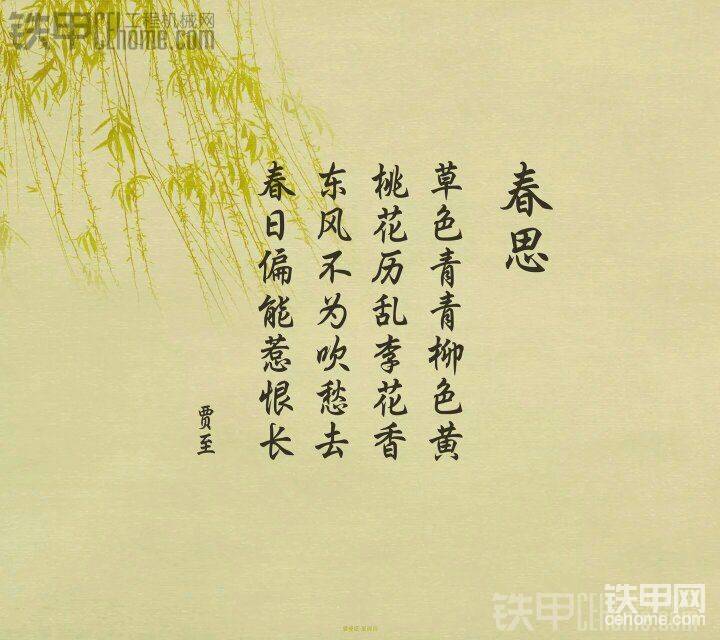 铁甲工程机械网
CEhome.com
春思
草色青青柳色黄
桃花历乱李花香
东风不为吹愁去
春日偏能惹恨长
贾至
铁甲网
cehome.com
铁甲CEhome.com